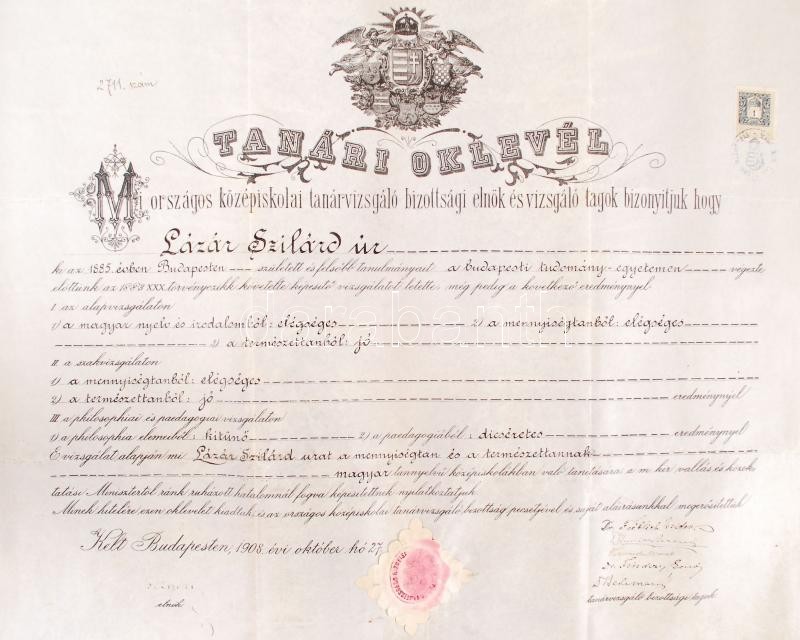 2711. szám
TANÁRI OKLEVÉL
Mi országos középiskolai tanárvizsgáló bizottsági elnök és vizsgáló tagok bizonyitjuk hogy
Lázár Szilárd úr
ki az 1885. évben Budapesten született és felsőbb tanulmányait a budapesti tudomány-egyetemen végezte
előttünk az 1883 XXX. törvényczikk követelte képesitő vizsgálatot letette, még pedig a következő eredménynyel.
I az alapvizsgálaton
1) a magyar nyelv és irodalomból: elégséges 2) a mennyiségtanból: elégséges
3) a természettanból: jó
II a szakvizsgálaton
1) a mennyiségtanból: elégséges
2) a természettanból: jó eredménynyel
III a philosophiai és paedagogiai vizsgálaton
1) a philosophia elemeiből: kitünő 2) a paedagogiából: dicséretes eredménynyel
E vizsgálat alapján mi Lázár Szilárd urat a mennyiségtan és a természettannak
magyar tannyelvü középiskolákban való tanitására a m. kir vallás és közok
tatási Minisztertől ránk ruházott hatalomnál fogva képesitettnek nyilatkoztatjuk
Minek hitelére ezen oklevelet kiadtuk és az országos középiskolai tanárvizsgáló bizottság pecsétjével és saját aláirásunkkal megerősitettük
Kelt Budapesten, 1908. évi október hó 27.
elnök
tanárvizsgáló bizottsági tagok